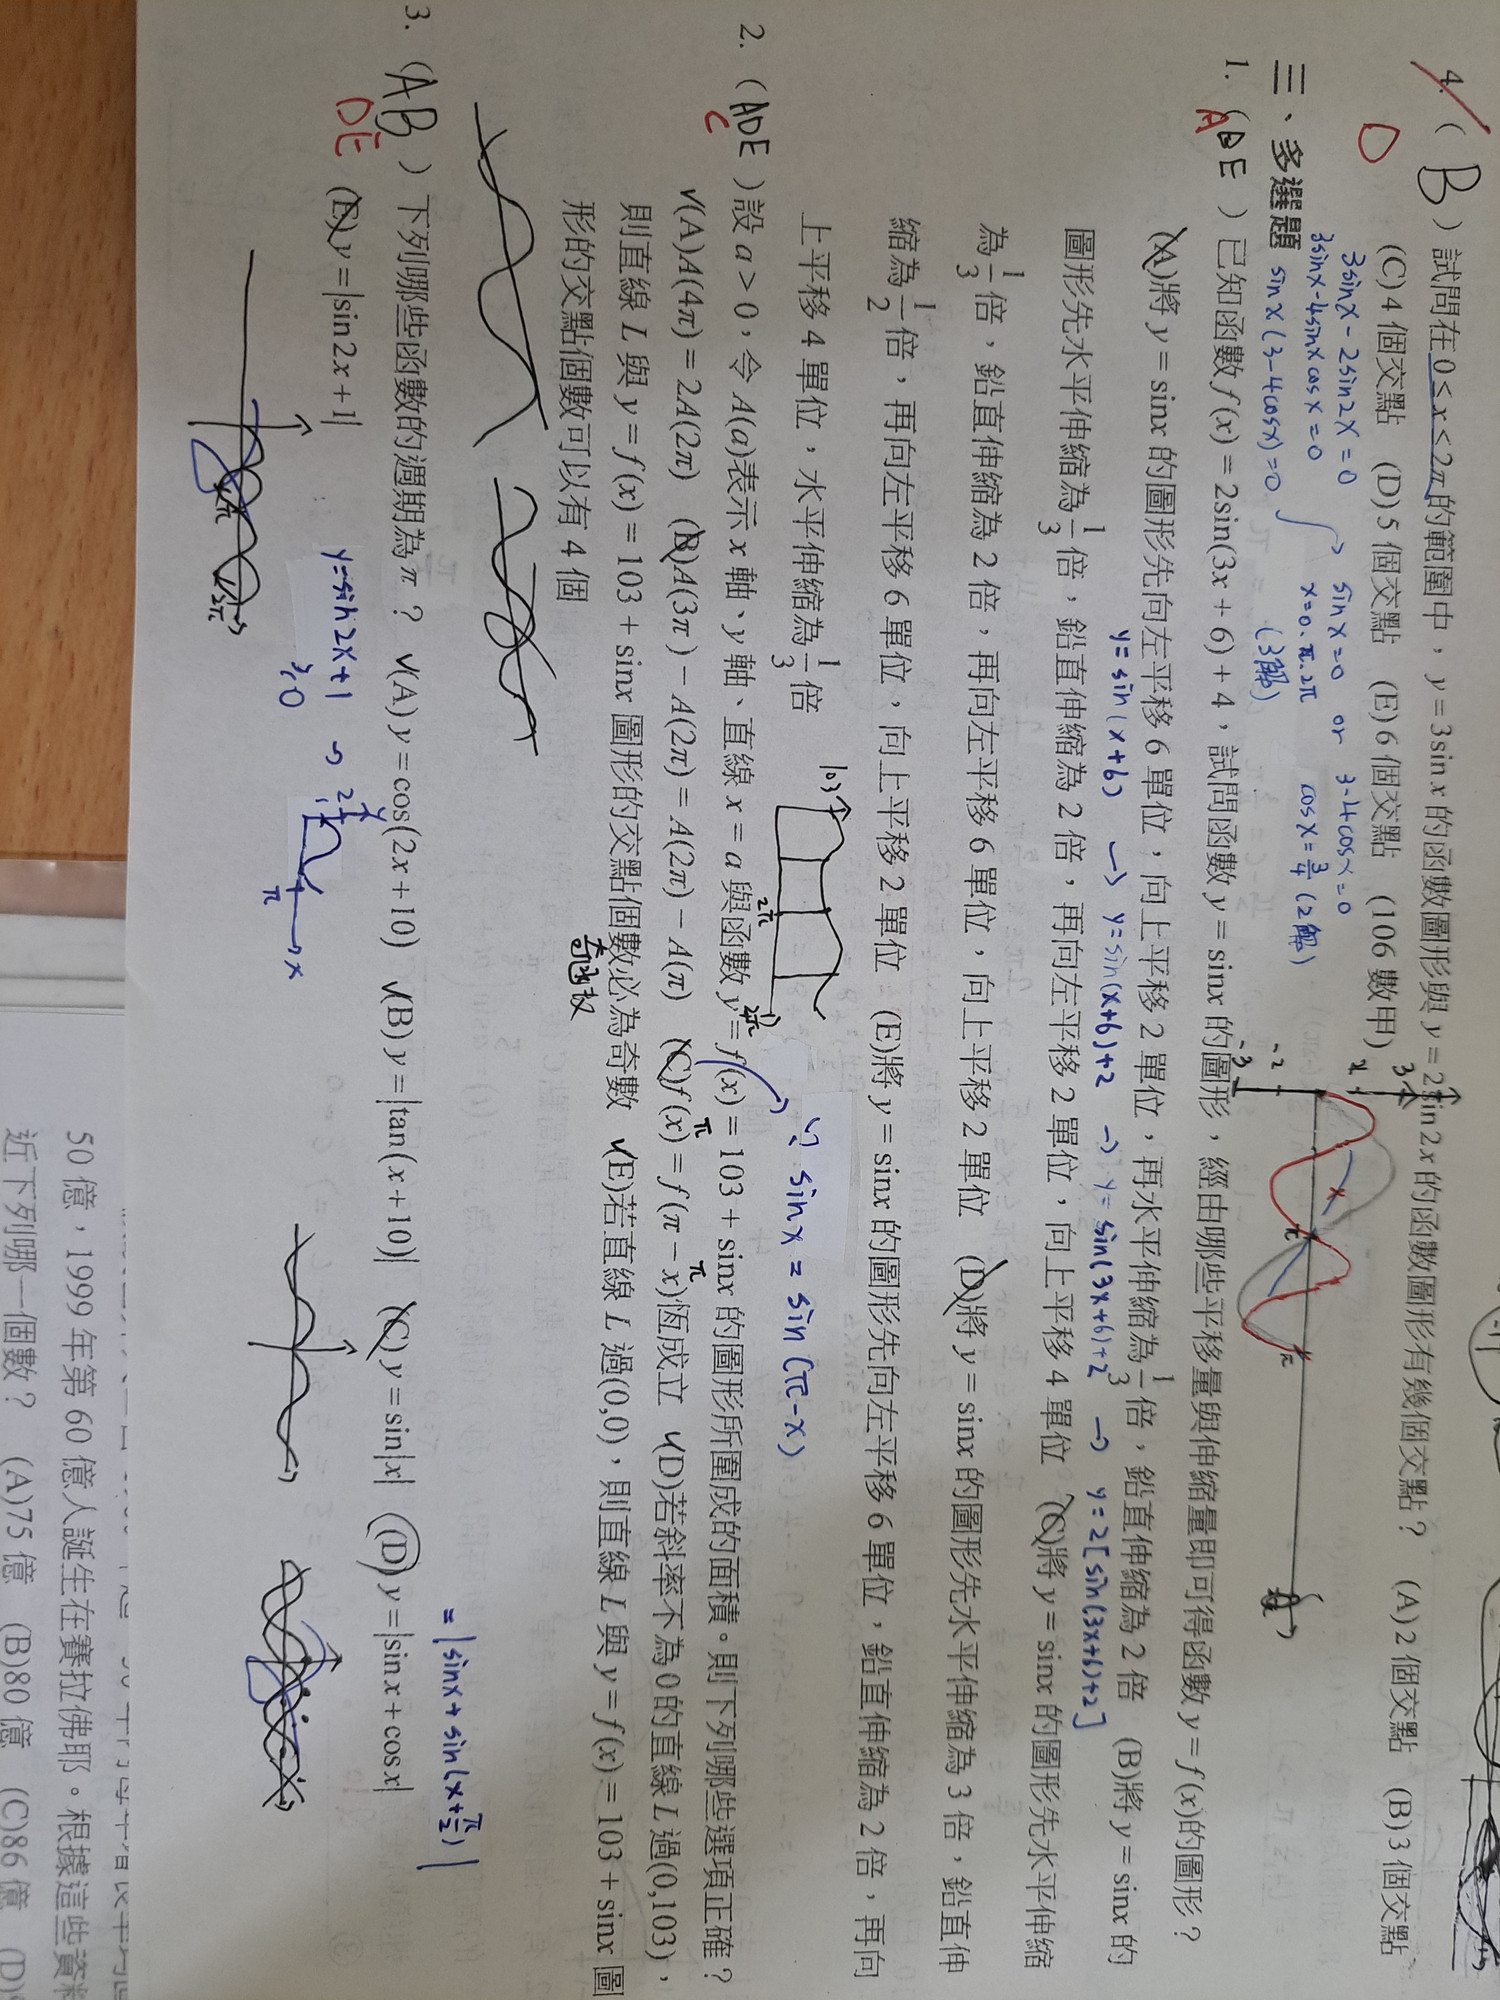 4. ( B ) 試問在 0 ≤ x ≤ 2π 的範圍中，y = 3sin x 的函數圖形與 y = 2sin 2x 的函數圖形有幾個交點？ (A) 2 個交點 (B) 3 個交點
D
(C) 4 個交點 (D) 5 個交點 (E) 6 個交點 (106 數甲)
3sinx - 2sin2x = 0
3sinx - 4sinx cosx = 0
sinx (3 - 4cosx) = 0
sinx = 0 or 3 - 4cosx = 0
x = 0、π、2π cosx = 3/4 (2解)
(3解)
3
-2
-3
π
三、多選題
1. ( BE ) 已知函數 f(x) = 2sin(3x + 6) + 4，試問函數 y = sinx 的圖形，經由哪些平移量與伸縮量即可得函數 y = f(x) 的圖形？
A
(A)將 y = sinx 的圖形先向左平移 6 單位，向上平移 2 單位，再水平伸縮為 1/3 倍，鉛直伸縮為 2 倍 (B)將 y = sinx 的
y = sin(x+6) → y = sin(x+6)+2 → y = sin(3x+6)+2 → y = 2[sin(3x+6)+2]
圖形先水平伸縮為 1/3 倍，鉛直伸縮為 2 倍，再向左平移 2 單位，向上平移 4 單位 (C)將 y = sinx 的圖形先水平伸縮
為 1/3 倍，鉛直伸縮為 2 倍，再向左平移 6 單位，向上平移 2 單位 (D)將 y = sinx 的圖形先水平伸縮為 3 倍，鉛直伸
縮為 1/2 倍，再向左平移 6 單位，向上平移 2 單位 (E)將 y = sinx 的圖形先向左平移 6 單位，鉛直伸縮為 2 倍，再向
上平移 4 單位，水平伸縮為 1/3 倍
103
2π
∵ sinx = sin(π-x)
2. ( ADE ) 設 a > 0，令 A(a)表示 x 軸、y 軸、直線 x = a 與函數 y = f(x) = 103 + sinx 的圖形所圍成的面積。則下列哪些選項正確？
C
✓(A) A(4π) = 2A(2π) (B) A(3π) − A(2π) = A(2π) − A(π) (C) f(x) = f(π − x)恆成立 ✓(D)若斜率不為 0 的直線 L 過(0,103)，
π π
則直線 L 與 y = f(x) = 103 + sinx 圖形的交點個數必為奇數 ✓(E)若直線 L 過(0,0)，則直線 L 與 y = f(x) = 103 + sinx 圖
形的交點個數可以有 4 個
= |sinx + sin(x+π/2)|
3. ( AB ) 下列哪些函數的週期為 π？ ✓(A) y = cos(2x + 10) ✓(B) y = |tan(x + 10)| (C) y = sin|x| (D) y = |sin x + cos x|
DE
(E) y = |sin2x + 1|
y = sin2x+1
≥0
2
1
y
π
x
π
2π
50 億，1999 年第 60 億人誕生在賽拉佛耶。根據這些資料
近下列哪一個數？ (A)75 億 (B)80 億 (C)86 億 (D)